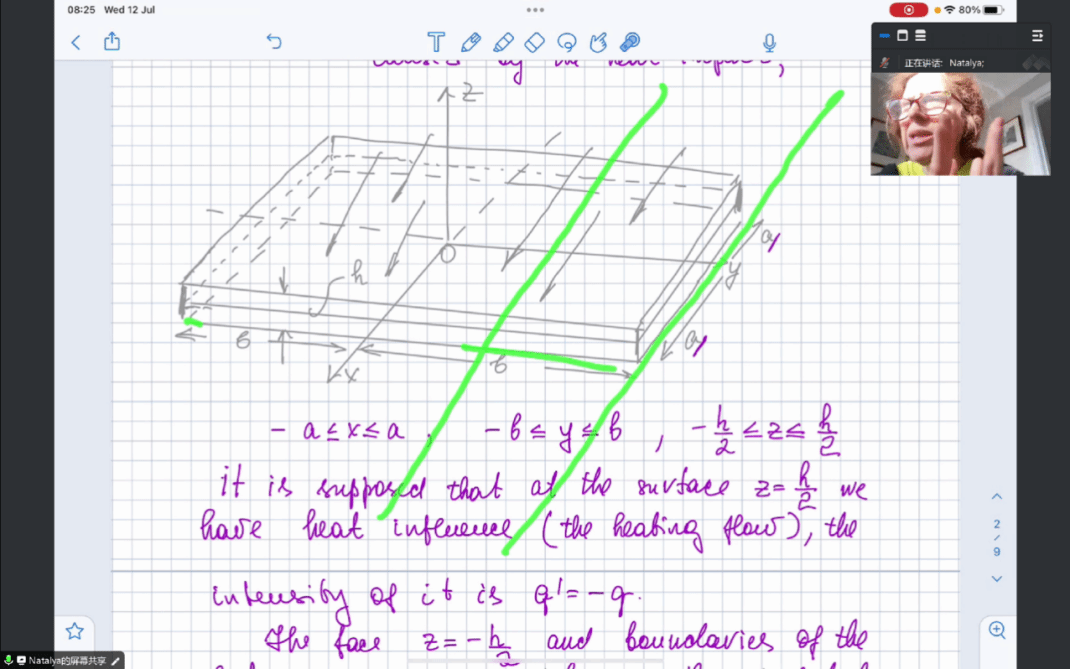 08:25 Wed 12 Jul
80%
正在讲话: Natalya;
by the heat
z
h
0
a
y
a
б
б
x
- a ≤ x ≤ a , - б ≤ y ≤ б , - h/2 ≤ z ≤ h/2
it is supposed that at the surface z = h/2 we
have heat influence (the heating flow), the
intensity of it is q' = - q.
The face z = - h/2 and boundaries of the
2
/
9
Natalya的屏幕共享